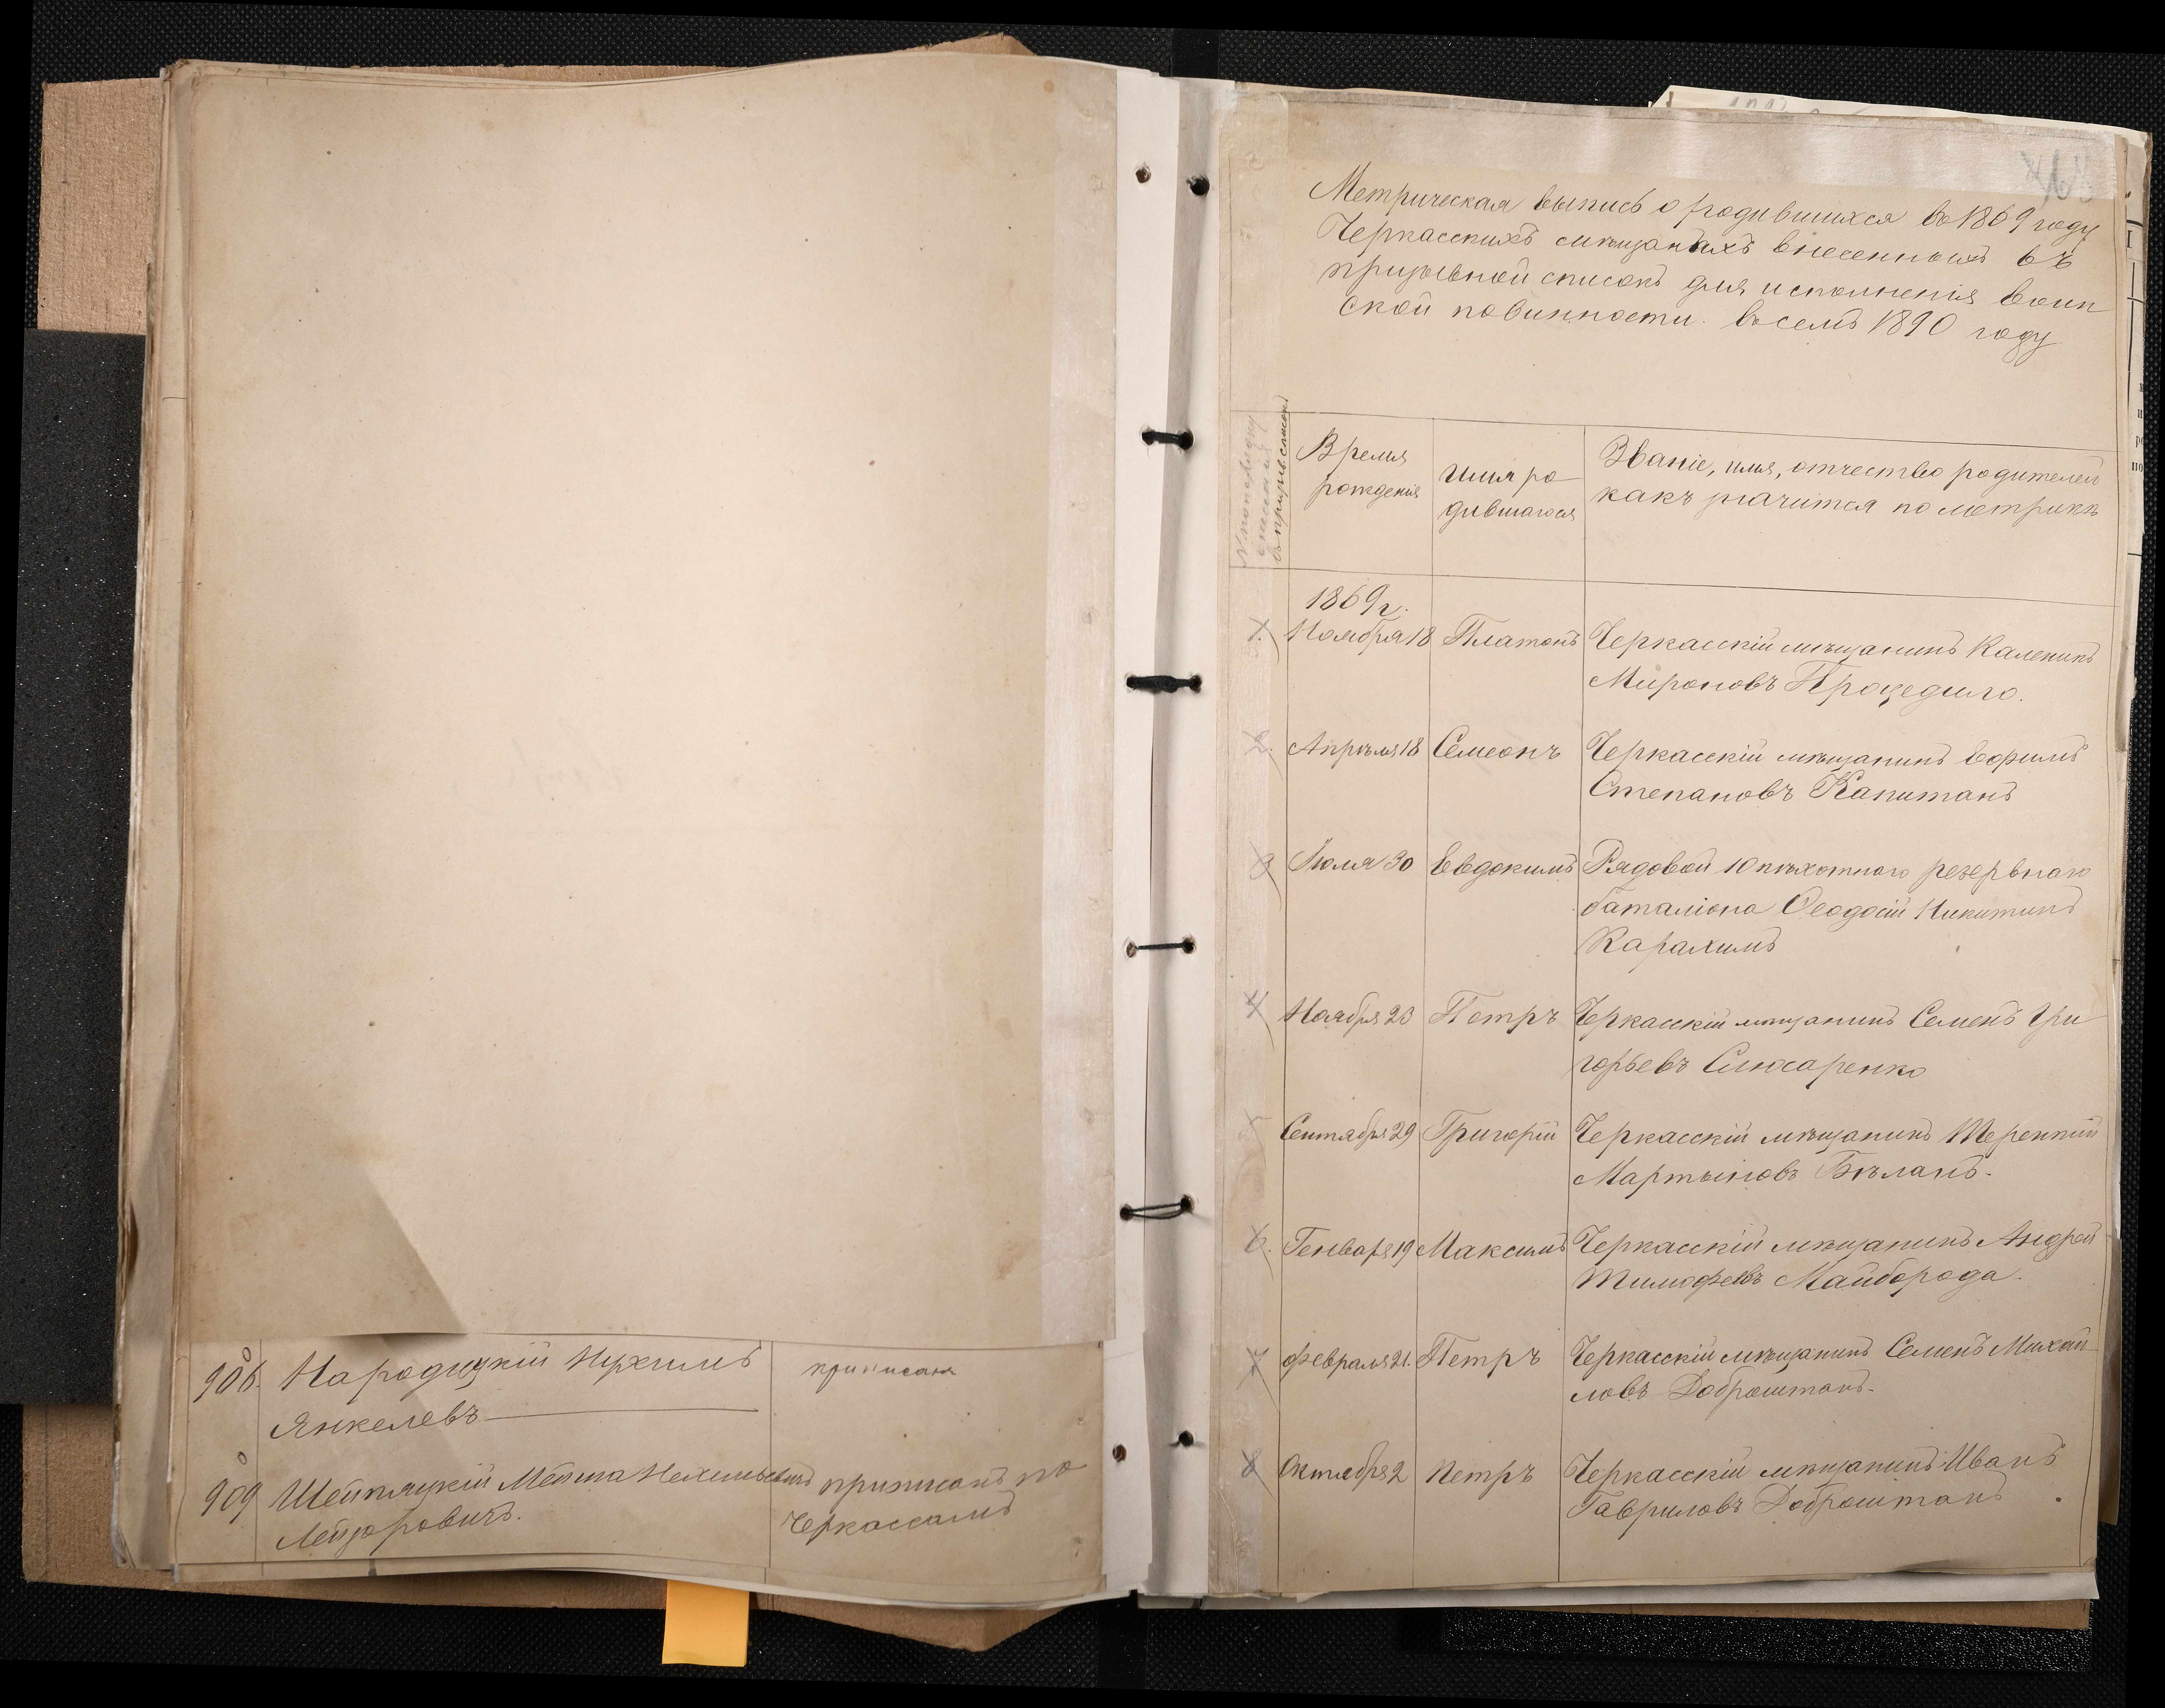 908. Народицкій Нухимъ приписанъ
Янкелевъ
909 Шептицкій Мейша Нехимьевичъ приписанъ по
Лейзоровичъ. Черкассамъ
Метрическая выпись о родившихся въ 1869 году
Черкасскихъ мѣщанахъ внесенныхъ въ
призывной списокъ для исполненія воин
ской повинности въ семъ 1890 году
Время
рожденія
Имя ро
дившагося
Званіе, имя, отчество родителей
какъ значится по метрикѣ
1869 г.
1. Ноября 18 Платонъ Черкасскій мѣщанинъ Каленикъ
Мироновъ Процедило.
2. Апрѣля 18 Семеонъ Черкасскій мѣщанинъ Ефимъ
Степановъ Капитанъ
3 Іюля 30 Евдокимъ Рядовой 10 пѣхотнаго резервнаго
баталіона Ѳеодосій Никитинъ
Карахимъ
4 Ноября 23 Петръ Черкасскій мѣщанинъ Семенъ Гри
горьевъ Слюсаренко
5 Сентября 29 Григорій Черкасскій мѣщанинъ Терентій
Мартыновъ Бѣланъ.
6. Генваря 19 Максимъ Черкасскій мѣщанинъ Андрей
Тимофеевъ Майборода.
7 Февраля 21. Петръ Черкасскій мѣщанинъ Семенъ Михай
ловъ Доброштанъ.
8 Октября 2 Петръ Черкасскій мѣщанинъ Иванъ
Гавриловъ Доброштанъ